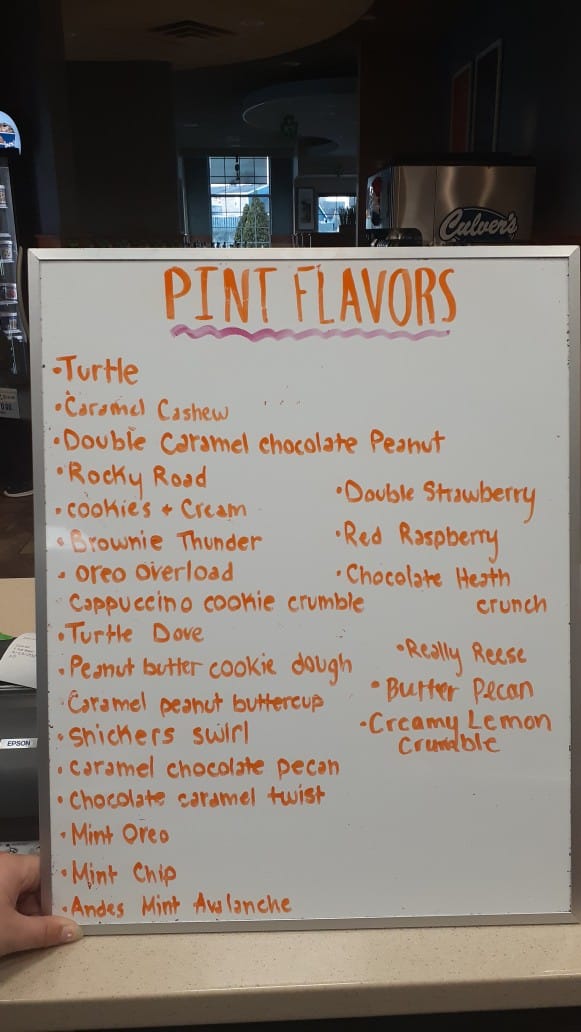 Culver's
PINT FLAVORS
•Turtle
•Caramel Cashew
•Double Caramel chocolate Peanut
•Rocky Road
•cookies + Cream
•Brownie Thunder
•Oreo Overload
Cappuccino cookie crumble
•Turtle Dove
•Peanut butter cookie dough
Caramel peanut buttercup
•Snickers swirl
•caramel chocolate pecan
•Chocolate caramel twist
•Mint Oreo
•Mint Chip
•Andes Mint Avalanche
•Double Strawberry
•Red Raspberry
•Chocolate Heath
crunch
•Really Reese
•Butter Pecan
•Creamy Lemon
Crumble
EPSON